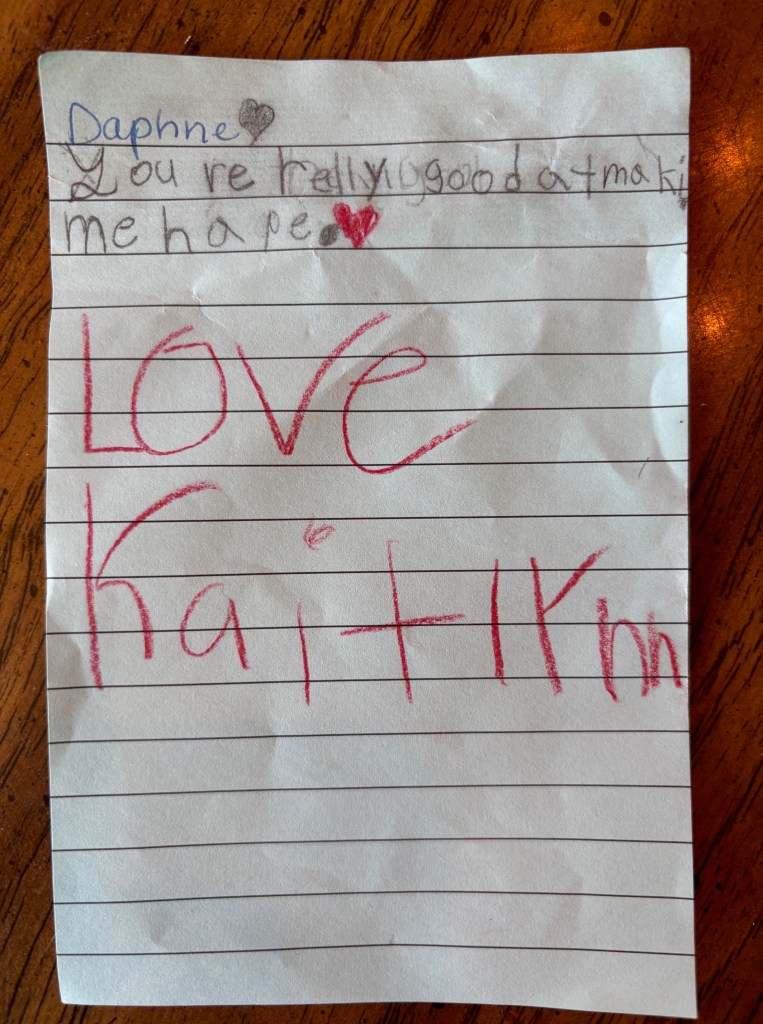 Daphne♥
You're relly good at maki
me hape.♥
Love
Kaitlynn